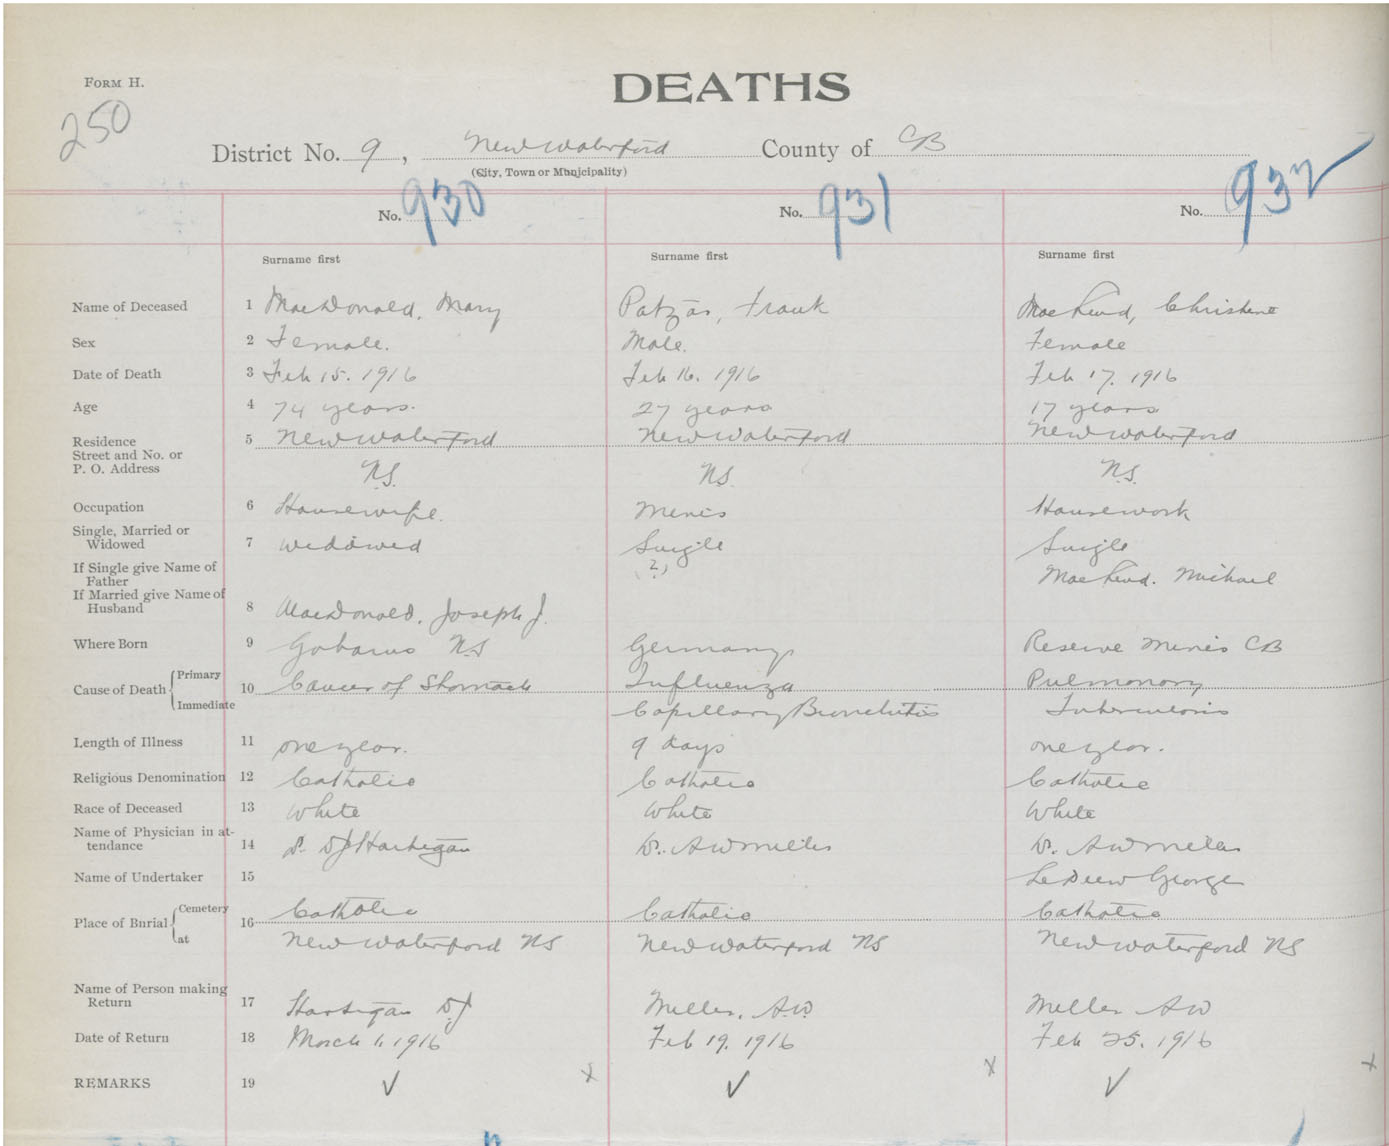 FORM H.
DEATHS
250
District No. 9, New Waterford County of CB
(City, Town or Municipality)
No. 930 No. 931 No. 932
Surname first Surname first Surname first
Name of Deceased 1 MacDonald, Mary Patzas, Frank Christene
Sex 2 Female. Male. Female
Date of Death 3 Feb 15. 1916 Feb 16. 1916 Feb 17. 1916
Age 4 74 years. 27 years 17 years
Residence 5 New Waterford New Waterford New Waterford
Street and No. or
P. O. Address NS. NS. NS.
Occupation 6 Housewife. Housework
Single, Married or
Widowed 7 Widowed Single Single
If Single give Name of
Father ? Michael
If Married give Name of
Husband 8 MacDonald, Joseph J.
Where Born 9 Gabarus NS Germany Reserve Mines CB
Cause of Death Primary 10 Cancer of Stomach Influenza Pulmonary
Immediate Capillary Bronchitis Tuberculosis
Length of Illness 11 one year. 9 days one year.
Religious Denomination 12 Catholic Catholic Catholic
Race of Deceased 13 White White White
Name of Physician in at-
tendance 14 Dr. DJ Hartigan Dr. AW Miller Dr. AW Miller
Name of Undertaker 15 George
Place of Burial Cemetery 16 Catholic Catholic Catholic
at New Waterford NS New Waterford NS New Waterford NS
Name of Person making
Return 17 Hartigan DJ Miller, A.W. Miller AW
Date of Return 18 March 1. 1916 Feb 19. 1916 Feb 25. 1916
REMARKS 19 ✓ x ✓ x ✓ x